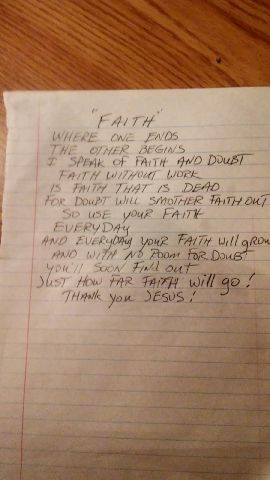 "FAITH"
WHERE ONE ENDS
THE OTHER BEGINS
I SPEAK OF FAITH AND DOUBT
FAITH WITHOUT WORK
IS FAITH THAT IS DEAD
FOR DOUBT WILL SMOTHER FAITH OUT
SO USE YOUR FAITH
EVERYDAY
AND EVERYDAY YOUR FAITH will grow
AND WITH NO ROOM FOR DOUBT
you'll SOON FIND OUT
JUST HOW FAR FAITH will go!
THANK you JESUS!